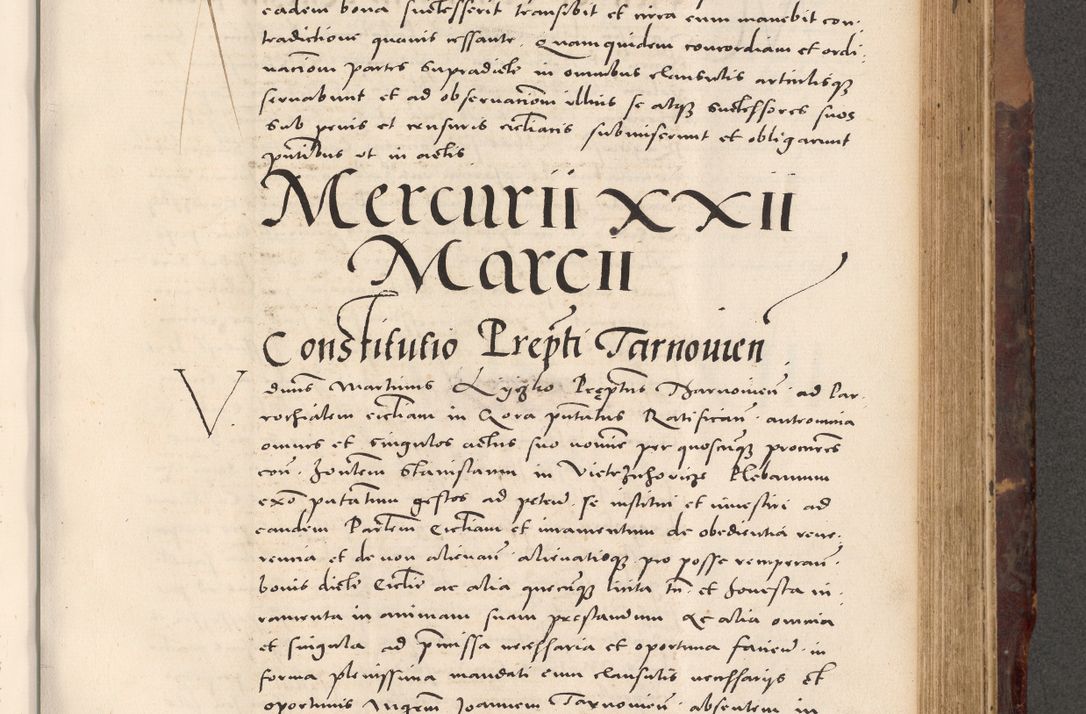 eadem bona successerit transibit et circa eum manebit con
tradictione quavis cessante. Quamquidem concordiam et ordi
nacionem partes supradicte in omnibus clausulis articulisque
servabunt et ad observacionem illius se atque successores suos
sub penis et censuris eccliasticis submiserunt et obligarunt
pntibus ut in actis
Mercurii XXII
Marcii
Constitutio Prepti Tarnovien
V. dnus Martinus Lyczko Preptus Tharnovien ad Par
rochialem eccliam in Gora pntatus Ratifican antronia
omnes et singulos actus suo nomine per quoscunque procures
con. honem Stanislaum in Vietrzichovicze Plebanum
pntatum gestos ad peten se institui et investiri ad
eandem Parlem Eccliam et iuramentum de obedientia reve
rencia et de non alienan alienatisque pro posse recuperan
bonis dicte Ecclie ac alia quecunque licita tn et honesta iu
ramenta in animam suam prestandum Ac alia omnia
et singula ad pmissa necessaria et oportuna facien in
forma plenissima mandati cum clausulis necessariis et
oportunis Mgrem Joannem Tarnovien absentem in